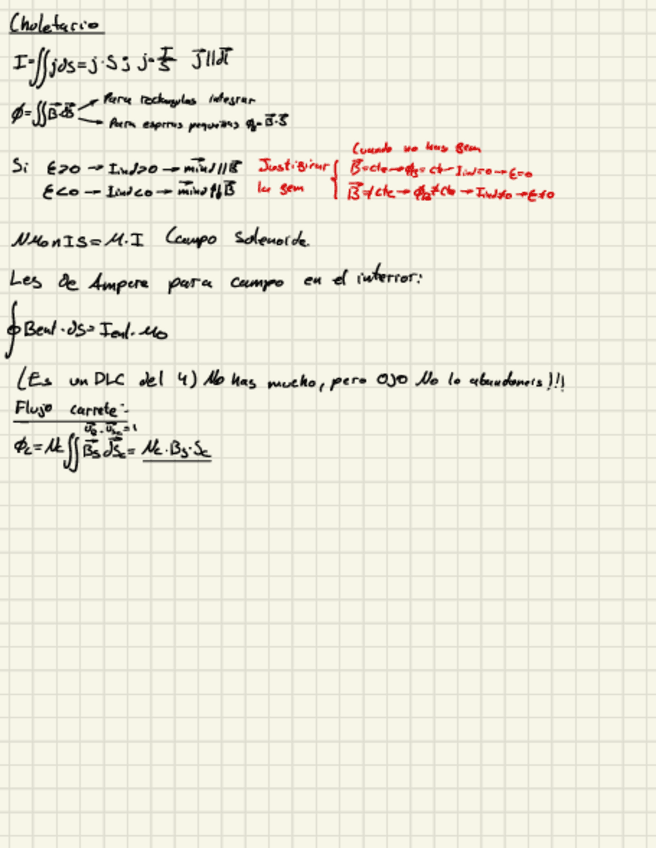 Choletario
I=∬jds=j·S; j=I/S J⃗||dl⃗
ϕ=∬B⃗·dS⃗ → Para rectangulos integrar
→ Para espiras pequeñas ϕ=B⃗·S⃗
Cuando no hay fem
Si ε>0 → Iind>0 → m⃗ind||B⃗ Justificar { B⃗=cte→ϕB=cte→Iind=0→ε=0
ε<0 → Iind<0 → m⃗ind∦B⃗ la fem B⃗≠cte→ϕB≠cte→Iind≠0→ε≠0
NμonIS=M·I Campo Solenoide
Ley de Ampere para campo en el interior:
∮Bent·ds=Ienl·μo
(Es un DLC del 4) No hay mucho, pero OJO No lo abandoneis)!!!
Flujo carrete:
u⃗B·u⃗Sc=1
ϕc=Nc∬B⃗s dS⃗c=Nc·Bs·Sc